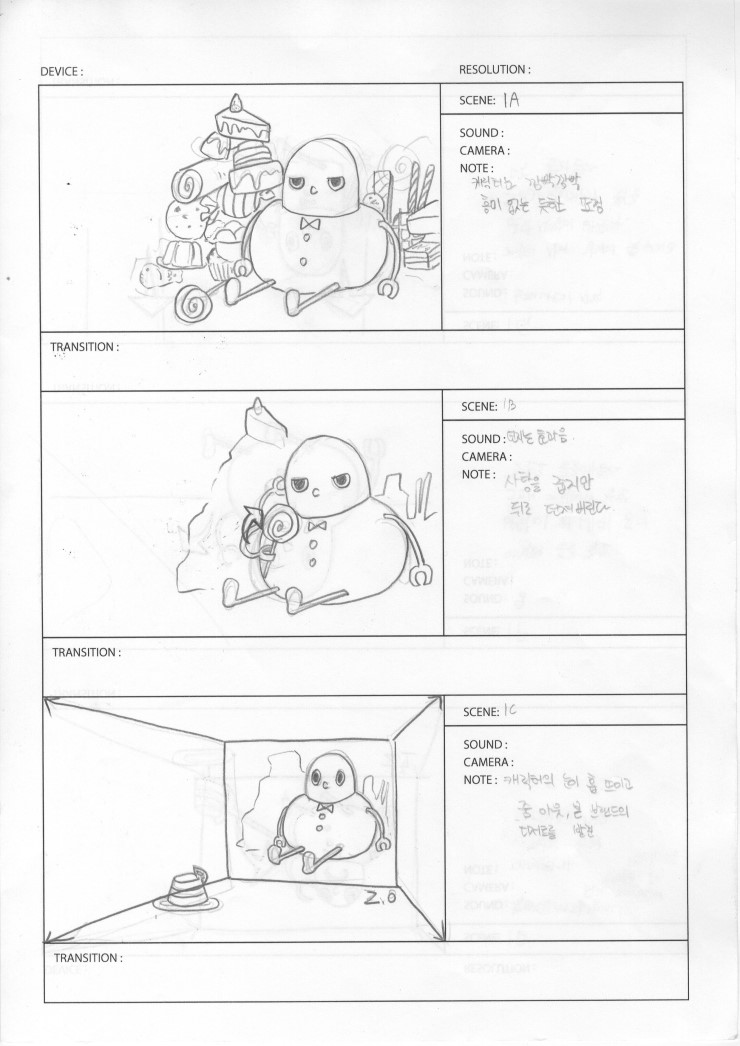 DEVICE :
RESOLUTION :
SCENE: 1A
SOUND :
CAMERA :
NOTE :
캐릭터는 깜빡깜빡
흥미 없는 듯한 표정
TRANSITION :
SCENE: 1B
SOUND :
CAMERA :
NOTE : 사탕을 줍지만
뒤로 던져버린다.
TRANSITION :
SCENE: 1C
SOUND :
CAMERA :
NOTE : 캐릭터의 눈이 홉 뜨이고
줌 아웃, 본 브랜드의
디저트를 발견
Z.O
TRANSITION :